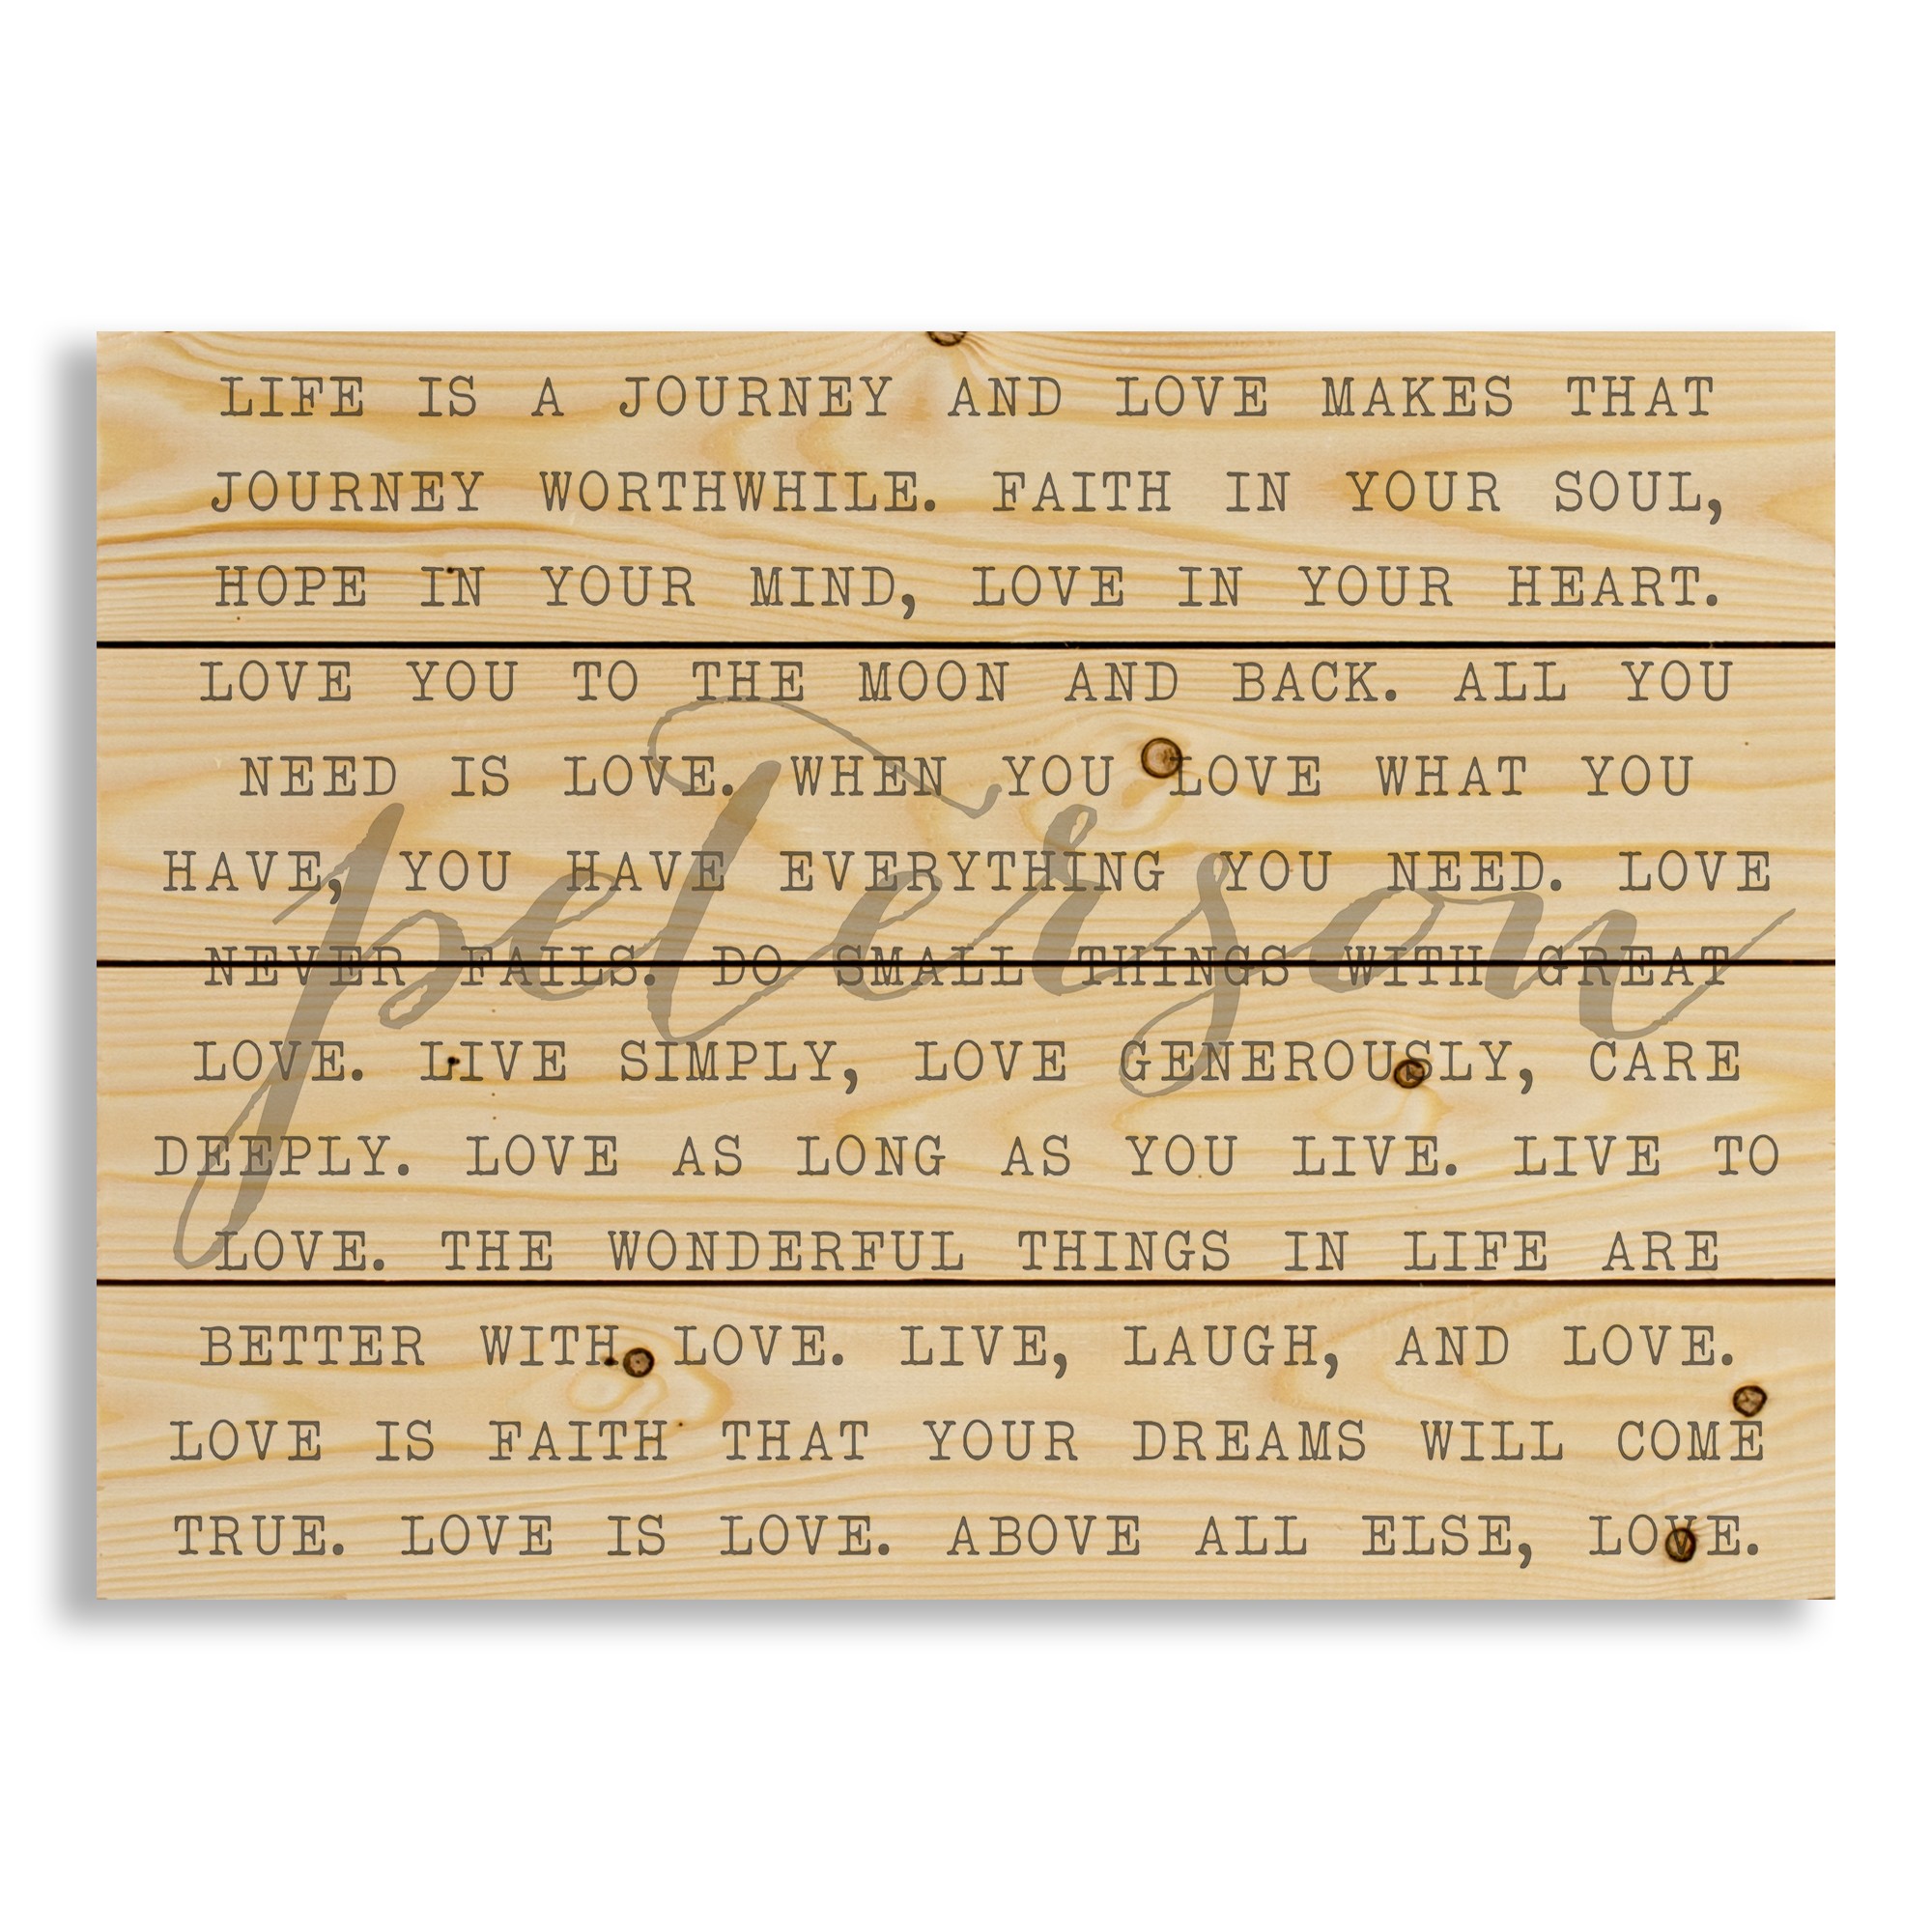 LIFE IS A JOURNEY AND LOVE MAKES THAT
JOURNEY WORTHWHILE. FAITH IN YOUR SOUL,
HOPE IN YOUR MIND, LOVE IN YOUR HEART.
LOVE YOU TO THE MOON AND BACK. ALL YOU
NEED IS LOVE. WHEN YOU LOVE WHAT YOU
HAVE, YOU HAVE EVERYTHING YOU NEED. LOVE
peterson
NEVER FAILS. DO SMALL THINGS WITH GREAT
LOVE. LIVE SIMPLY, LOVE GENEROUSLY, CARE
DEEPLY. LOVE AS LONG AS YOU LIVE. LIVE TO
LOVE. THE WONDERFUL THINGS IN LIFE ARE
BETTER WITH LOVE. LIVE, LAUGH, AND LOVE.
LOVE IS FAITH THAT YOUR DREAMS WILL COME
TRUE. LOVE IS LOVE. ABOVE ALL ELSE, LOVE.